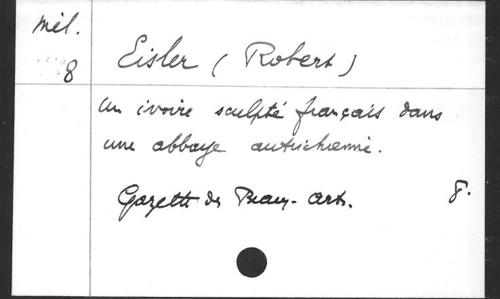 Mél.
8
Eisler (Robert)
Un ivoire sculpté français dans
une abbaye autrichienne.
Gazette des Beaux-Arts. 8.